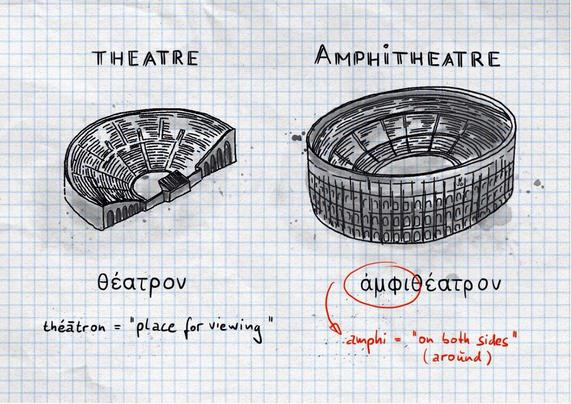 THEATRE
AMPHiTHEATRE
θέατρον
ἀμφιθέατρον
théātron = "place for viewing"
amphi = "on both sides"
(around)